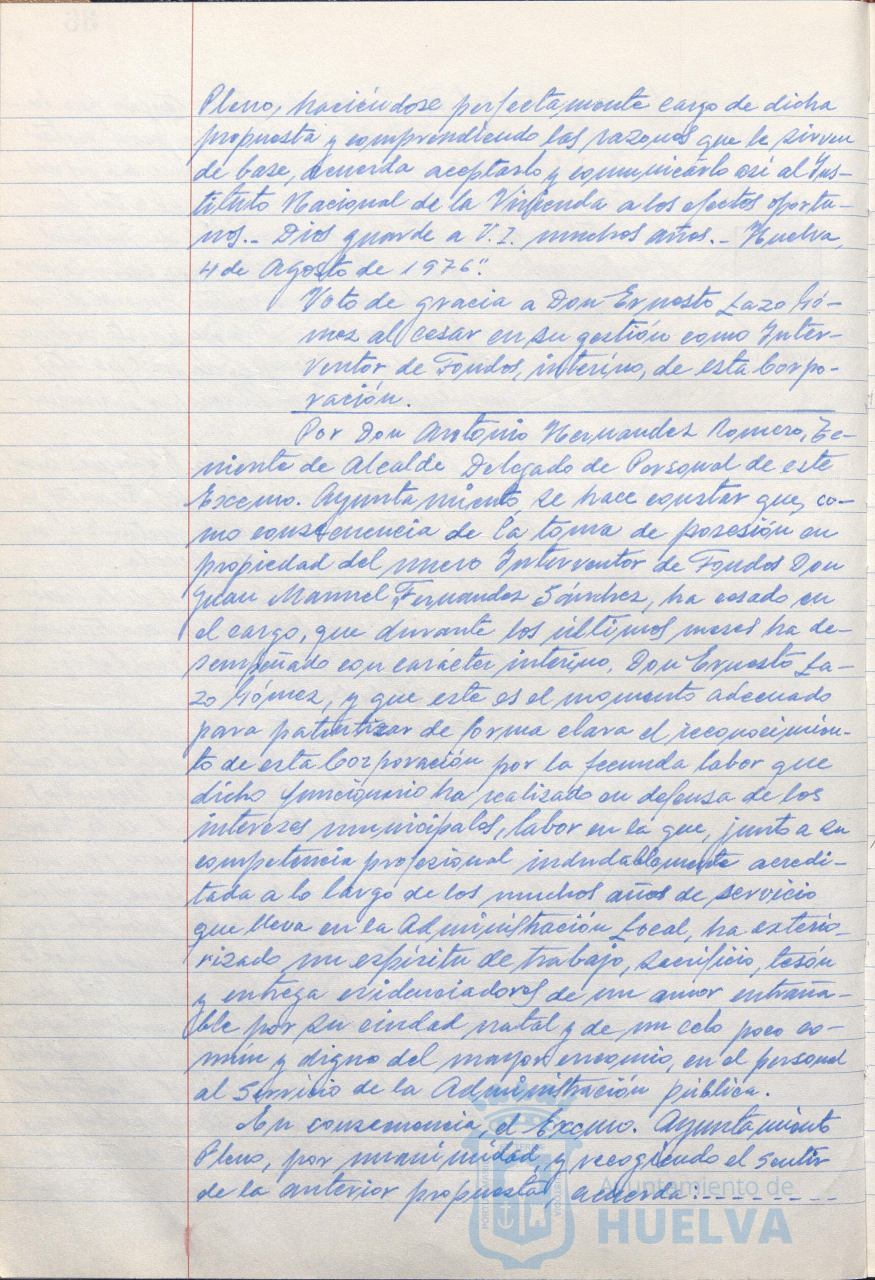 Pleno, haciéndose perfectamente cargo de dicha
propuesta y comprendiendo las razones que le sirven
de base, acuerda aceptarlo y comunicarlo así al Ins-
tituto Nacional de la Vivienda a los efectos oportu-
nos.- Dios guarde a V.I. muchos años.- Huelva,
4 de Agosto de 1976".
Voto de gracia a Don Ernesto Lazo Gó-
mez al cesar en su gestión como Inter-
ventor de Fondos, interino, de esta Corpo-
ración.
Por Don Antonio Hernandez Romero, Te-
niente de Alcalde Delegado de Personal de este
Excmo. Ayuntamiento, se hace constar que, co-
mo consecuencia de la toma de posesión en
propiedad del nuevo Interventor de Fondos Don
Juan Manuel Fernandez Sánchez, ha cesado en
el cargo, que durante los últimos meses ha de-
sempeñado con carácter interino, Don Ernesto La-
zo Gómez, y que este es el momento adecuado
para patentizar de forma clara el reconocimien-
to de esta Corporación por la fecunda labor que
dicho funcionario ha realizado en defensa de los
intereses municipales, labor en la que, junto a su
competencia profesional indudablemente acredi-
tada a lo largo de los muchos años de servicio
que lleva en la Administración Local, ha exterio-
rizado un espíritu de trabajo, sacrificio, tesón
y entrega evidenciadores de un amor entraña-
ble por su ciudad natal y de un celo poco co-
mún y digno del mayor encomio, en el personal
al servicio de la Administración pública.
En consecuencia, el Excmo. Ayuntamiento
Pleno, por unanimidad, y recogiendo el sentir
de la anterior propuesta, acuerda:--------
Ayuntamiento de
HUELVA